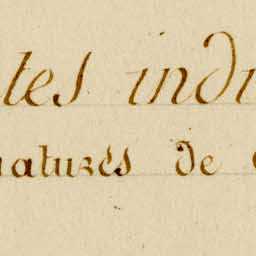 tes indi
natures de